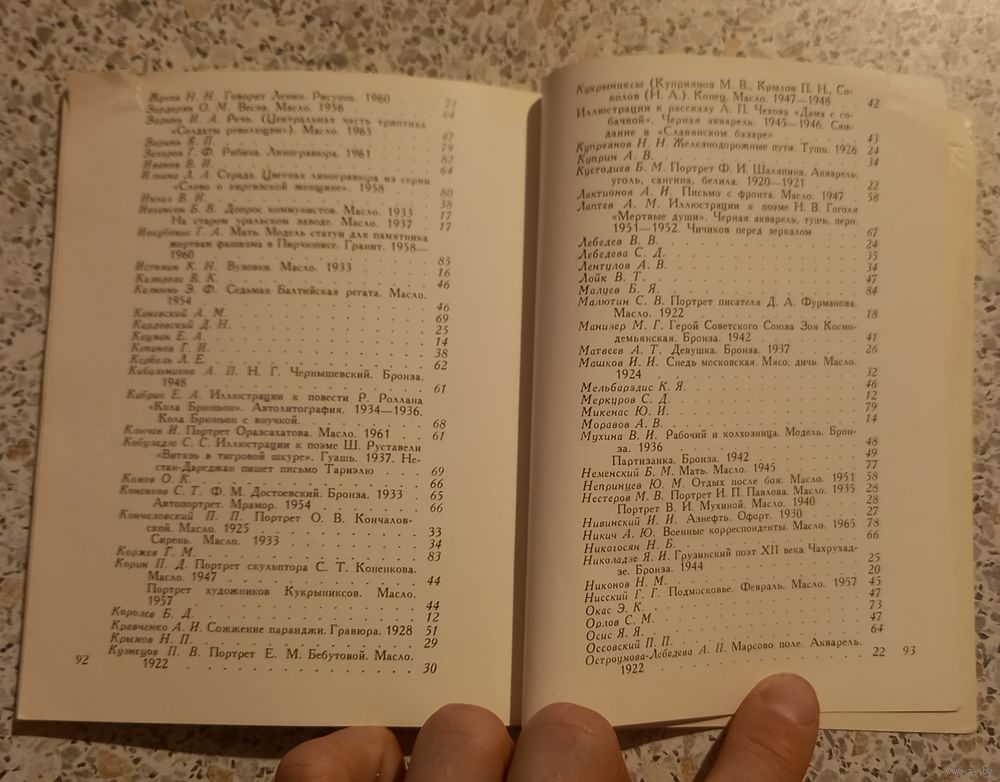 Жуков Н. Н. Говорит Ленин. Рисунок. 1960 71
Зардарян О. М. Весна. Масло. 1956 64
Заринь И. А. Речь. (Центральная часть триптиха
«Солдаты революции»). Масло. 1965 47
Заринь Я. П. 79
Захаров Г. Ф. Рябина. Линогравюра. 1961 82
Иванов В. И. 64
Ильина Л. А. Страда. Цветная линогравюра из серии
«Слово о киргизской женщине». 1958 80
Инзал В. И. 38
Иогансон Б. В. Допрос коммунистов. Масло. 1933 17
На старом уральском заводе. Масло. 1937 17
Иокубонис Г. А. Мать. Модель статуи для памятника
жертвам фашизма в Пирчюписе. Гранит. 1958—
1960 85
Истомин К. Н. Вузовки. Масло. 1933 16
Каляров В. К. 46
Калнынь Э. Ф. Седьмая Балтийская регата. Масло.
1954 46
Каневский А. М. 69
Кардовский Д. Н. 25
Кацман Е. А. 14
Кепинов Г. И. 38
Кербель Л. Е. 62
Кибальников А. П. Н. Г. Чернышевский. Бронза.
1948 61
Кибрик Е. А. Иллюстрации к повести Р. Роллана
«Кола Брюньон». Автолитография. 1934—1936.
Кола Брюньон с внучкой. 68
Клычев И. Портрет Оразсахатова. Масло. 1961 61
Кобуладзе С. С. Иллюстрации к поэме Ш. Руставели
«Витязь в тигровой шкуре». Гуашь. 1937. Не-
стан-Дареджан пишет письмо Тариэлю 69
Комов О. К. 66
Коненков С. Т. Ф. М. Достоевский. Бронза. 1933 65
Автопортрет. Мрамор. 1954 66
Кончаловский П. П. Портрет О. В. Кончалов-
ской. Масло. 1925 33
Сирень. Масло. 1933 34
Коржев Г. М. 83
Корин П. Д. Портрет скульптора С. Т. Коненкова.
Масло. 1947 44
Портрет художников Кукрыниксов. Масло.
1957 44
Королев Б. Д. 12
Кравченко А. И. Сожжение паранджи. Гравюра. 1928 51
Крымов Н. П. 29
Кузнецов П. В. Портрет Е. М. Бебутовой. Масло.
1922 30
92
Кукрыниксы (Куприянов М. В., Крылов П. Н., Со-
колов (Н. А.). Конец. Масло. 1947—1948 42
Иллюстрации к рассказу А. П. Чехова «Дама с со-
бачкой». Черная акварель. 1945—1946. Сви-
дание в «Славянском базаре» 43
Купреянов Н. Н. Железнодорожные пути. Тушь. 1926 24
Куприн А. В. 34
Кустодиев Б. М. Портрет Ф. И. Шаляпина. Акварель,
уголь, сангина, белила. 1920—1921 22
Лактионов А. И. Письмо с фронта. Масло. 1947 58
Лаптев А. М. Иллюстрации к поэме Н. В. Гоголя
«Мертвые души». Черная акварель, тушь, перо.
1951—1952. Чичиков перед зеркалом 67
Лебедев В. В. 24
Лебедева С. Д. 35
Лентулов А. В. 34
Лойк В. Т. 47
Малуев Б. Я. 84
Малютин С. В. Портрет писателя Д. А. Фурманова.
Масло. 1922 18
Манизер М. Г. Герой Советского Союза Зоя Космо-
демьянская. Бронза. 1942 41
Матвеев А. Т. Девушка. Бронза. 1937 26
Машков И. И. Снедь московская. Мясо, дичь. Масло.
1924 32
Мельбардзис К. Я. 46
Меркуров С. Д. 12
Микенас Ю. И. 79
Моравов А. В. 14
Мухина В. И. Рабочий и колхозница. Модель. Брон-
за. 1936 48
Партизанка. Бронза. 1942 49
Неменский Б. М. Мать. Масло. 1945 77
Непринцев Ю. М. Отдых после боя. Масло. 1951 58
Нестеров М. В. Портрет И. П. Павлова. Масло. 1935 28
Портрет В. И. Мухиной. Масло. 1940 28
Нивинский И. И. Азнефть. Офорт. 1930 27
Никич А. Ю. Военные корреспонденты. Масло. 1965 78
Никогосян Н. Б. 66
Николадзе Я. И. Грузинский поэт XII века Чахрухад-
зе. Бронза. 1944 25
Никонов Н. М. 20
Нисский Г. Г. Подмосковье. Февраль. Масло. 1957 45
Окас Э. К. 47
Орлов С. М. 73
Осис Я. Я. 47
Оссовский П. П. 64
Остроумова-Лебедева А. П. Марсово поле. Акварель.
1922 22
93
www.ay.by